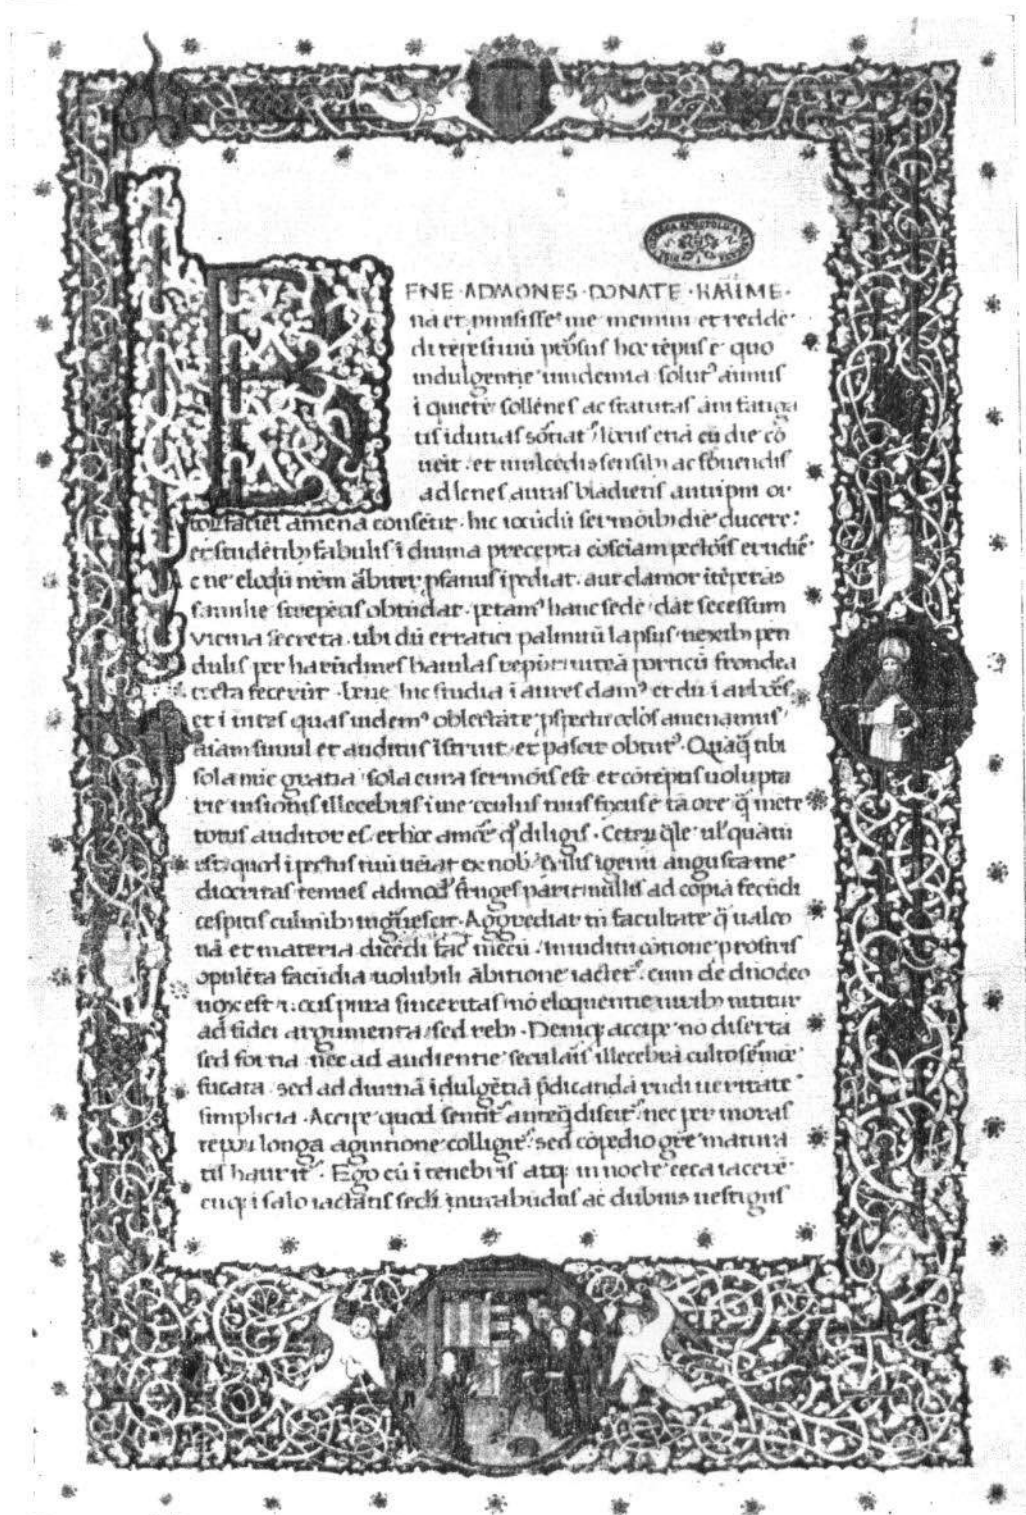 B
ENE · ADMONES · DONATE · KARIME ·
na et promisisse me memini et redde
di tēpestiuū prorsus hoc tēpus ē quo
indulgentie uindemia solut9 animus
ī quietē sollēnes ac statutas āni fatiga
tis īdutias sortiat locus etiā cū die cō
ueit et mulcēdis sensibꝫ ac fouendis
ad lenes auras blādiētis autūpni or
torū facies amena consētit hic iocūdū sermōibꝫ diē ducere
et studētibꝫ fabulis ī diuina precepta cōsciam pectoris erudire
Ac ne eloquiū nr̄m ābiter pfanus īpediat aut clamor ītēperās
familie strepētis obtūdat petam9 hanc sedē dāt secessum
vicina secreta ubi dū erratici palmitū lapsus nexibꝫ pen
dulis per harūdines baiulas repūt uiteā porticū frondea
tecta fecerūt Bene hic studia ī aures dam9 et dū ī arbores
et ī uites quas uidem9 oblectāte pspectu oclōs amenamus
aīam simul et auditus īstruit et pascit obtut9 Quāq̄ tibi
sola nūc gratia sola cura sermōis est et cōteptis uolupta
rie uisionis illecebris ī me oculus tuus fixus ē tā ore q̄ mēte
totus auditor es et hoc amore q̄ diligis Ceterū q̄le ul' quātū
est quod ī pectus tuū ueīat ex nob exilis īgenii angusta me
diocritas tenues admod̄ fruges parit nullis ad copiā fecūdi
cespitis culmibꝫ īgrauescit Aggrediar tn̄ facultate q̄ ualeo
nā et materia dicēdi fac mecū In iudiciis cōtione prostris
opulēta facūdia uolubili ābitione iactet cum de dn̄o deo
uox est uocis pura sinceritas nō eloquentie uiribꝫ nititur
ad fidei argumenta sed rebꝫ Deniqꝫ accipe nō diserta
sed fortia nec ad audientie secularis illecebrā culto sermōe
fucata sed ad diuinā īdulgētiā p̄dicandā rudi ueritate
simplicia Accipe quod sentit anteq̄ discit nec per moras
tēpor̄ longa agnitione colligit sed cōpēdio gr̄e matura
tis haurit Ego cū ī tenebris atqꝫ in nocte ceca iacerē
cūqꝫ ī salo iactātis secli nutabūdus ac dubiis uestigiis